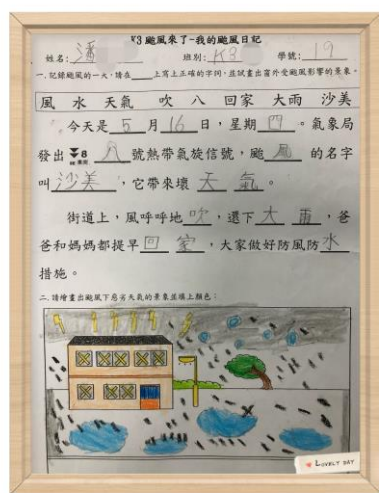 K3 颱風來了-我的颱風日記
姓名: 潘 班別: K3 學號: 19
一.記錄颱風的一天,請在____上寫上正確的字詞,並試畫出窗外受颱風影響的景象。
風 水 天氣 吹 八 回家 大雨 沙美
今天是 5 月 16 日,星期 四 。氣象局
發出 8 八 號熱帶氣旋信號,颱 風 的名字
叫 沙美 ,它帶來壞 天 氣 。
街道上,風呼呼地 吹 ,還下 大 雨 ,爸
爸和媽媽都提早 回 家 ,大家做好防風防 水
措施。
二.請繪畫出颱風下惡劣天氣的景象並填上顏色:
LOVELY DAY